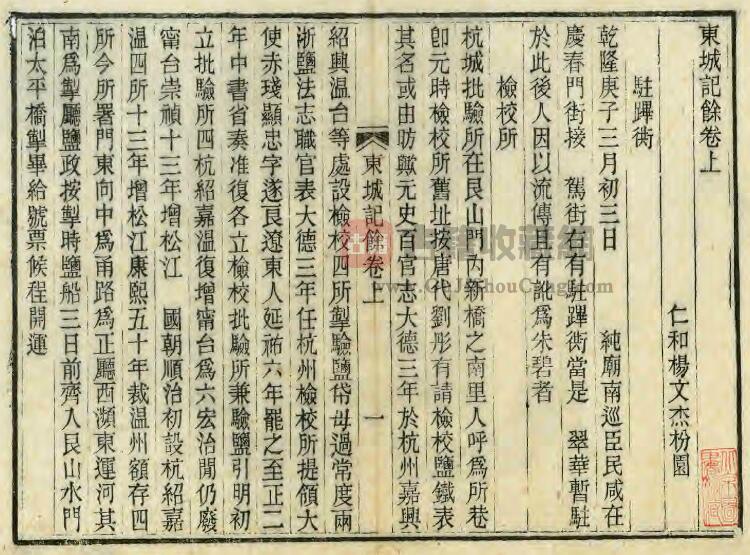 東城記餘卷上
仁和楊文杰枌園
駐蹕衖
乾隆庚子三月初三日 純廟南巡臣民咸在
慶春門街接 駕街右有駐蹕衖當是 翠華暫駐
於此後人因以流傳且有訛爲朱碧者
檢校所
杭城批驗所在艮山門內新橋之南里人呼爲所巷
卽元時檢校所舊址按唐代劉彤有請檢校鹽鐵表
其名或由昉歟元史百官志大德三年於杭州嘉興
東城記餘卷上 一
紹興溫台等處設檢校四所掣驗鹽帒毋過常度兩
浙鹽法志職官表大德三年任杭州檢校所提領大
使赤琖顯忠字遂良遼東人延祐六年罷之至正二
年中書省奏准復各立檢校批驗所兼驗鹽引明初
立批驗所四杭紹嘉溫復增甯台爲六宏治閒仍廢
甯台崇禎十三年增松江 國朝順治初設杭紹嘉
溫四所十三年增松江康熙五十年裁溫州額存四
所今所署門東向中爲甬路爲正廳西瀕東運河其
南爲掣廳鹽政按掣時鹽船三日前齊入艮山水門
泊太平橋掣畢給號票候程開運
古籍收藏網
www.GuJiShouCang.com